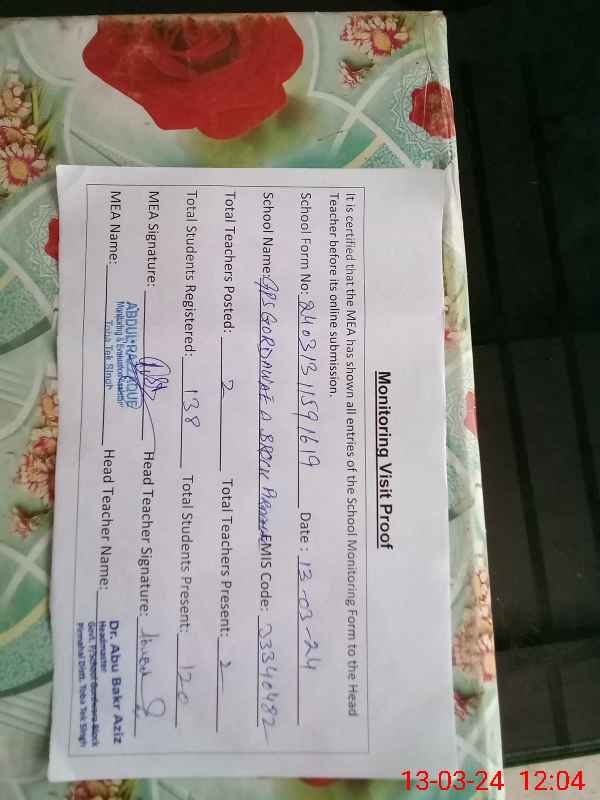 Monitoring Visit Proof
It is certified that the MEA has shown all entries of the School Monitoring Form to the Head
Teacher before its online submission.
School Form No: 24031311591619 Date : 13-03-24
School Name: GPS GORDAWAR A BROCK EMIS Code: 33340482
Total Teachers Posted: 2 Total Teachers Present: 2
Total Students Registered: 138 Total Students Present: 120
MEA Signature: Head Teacher Signature:
MEA Name: ABDUL RAZZAQUE Head Teacher Name: Dr. Abu Bakr Aziz
Monitoring & Evaluation
Toba Tek Singh
Headmaster
Govt. P/School Block
Pirmahal Distt. Toba Tek Singh
13-03-24 12:04